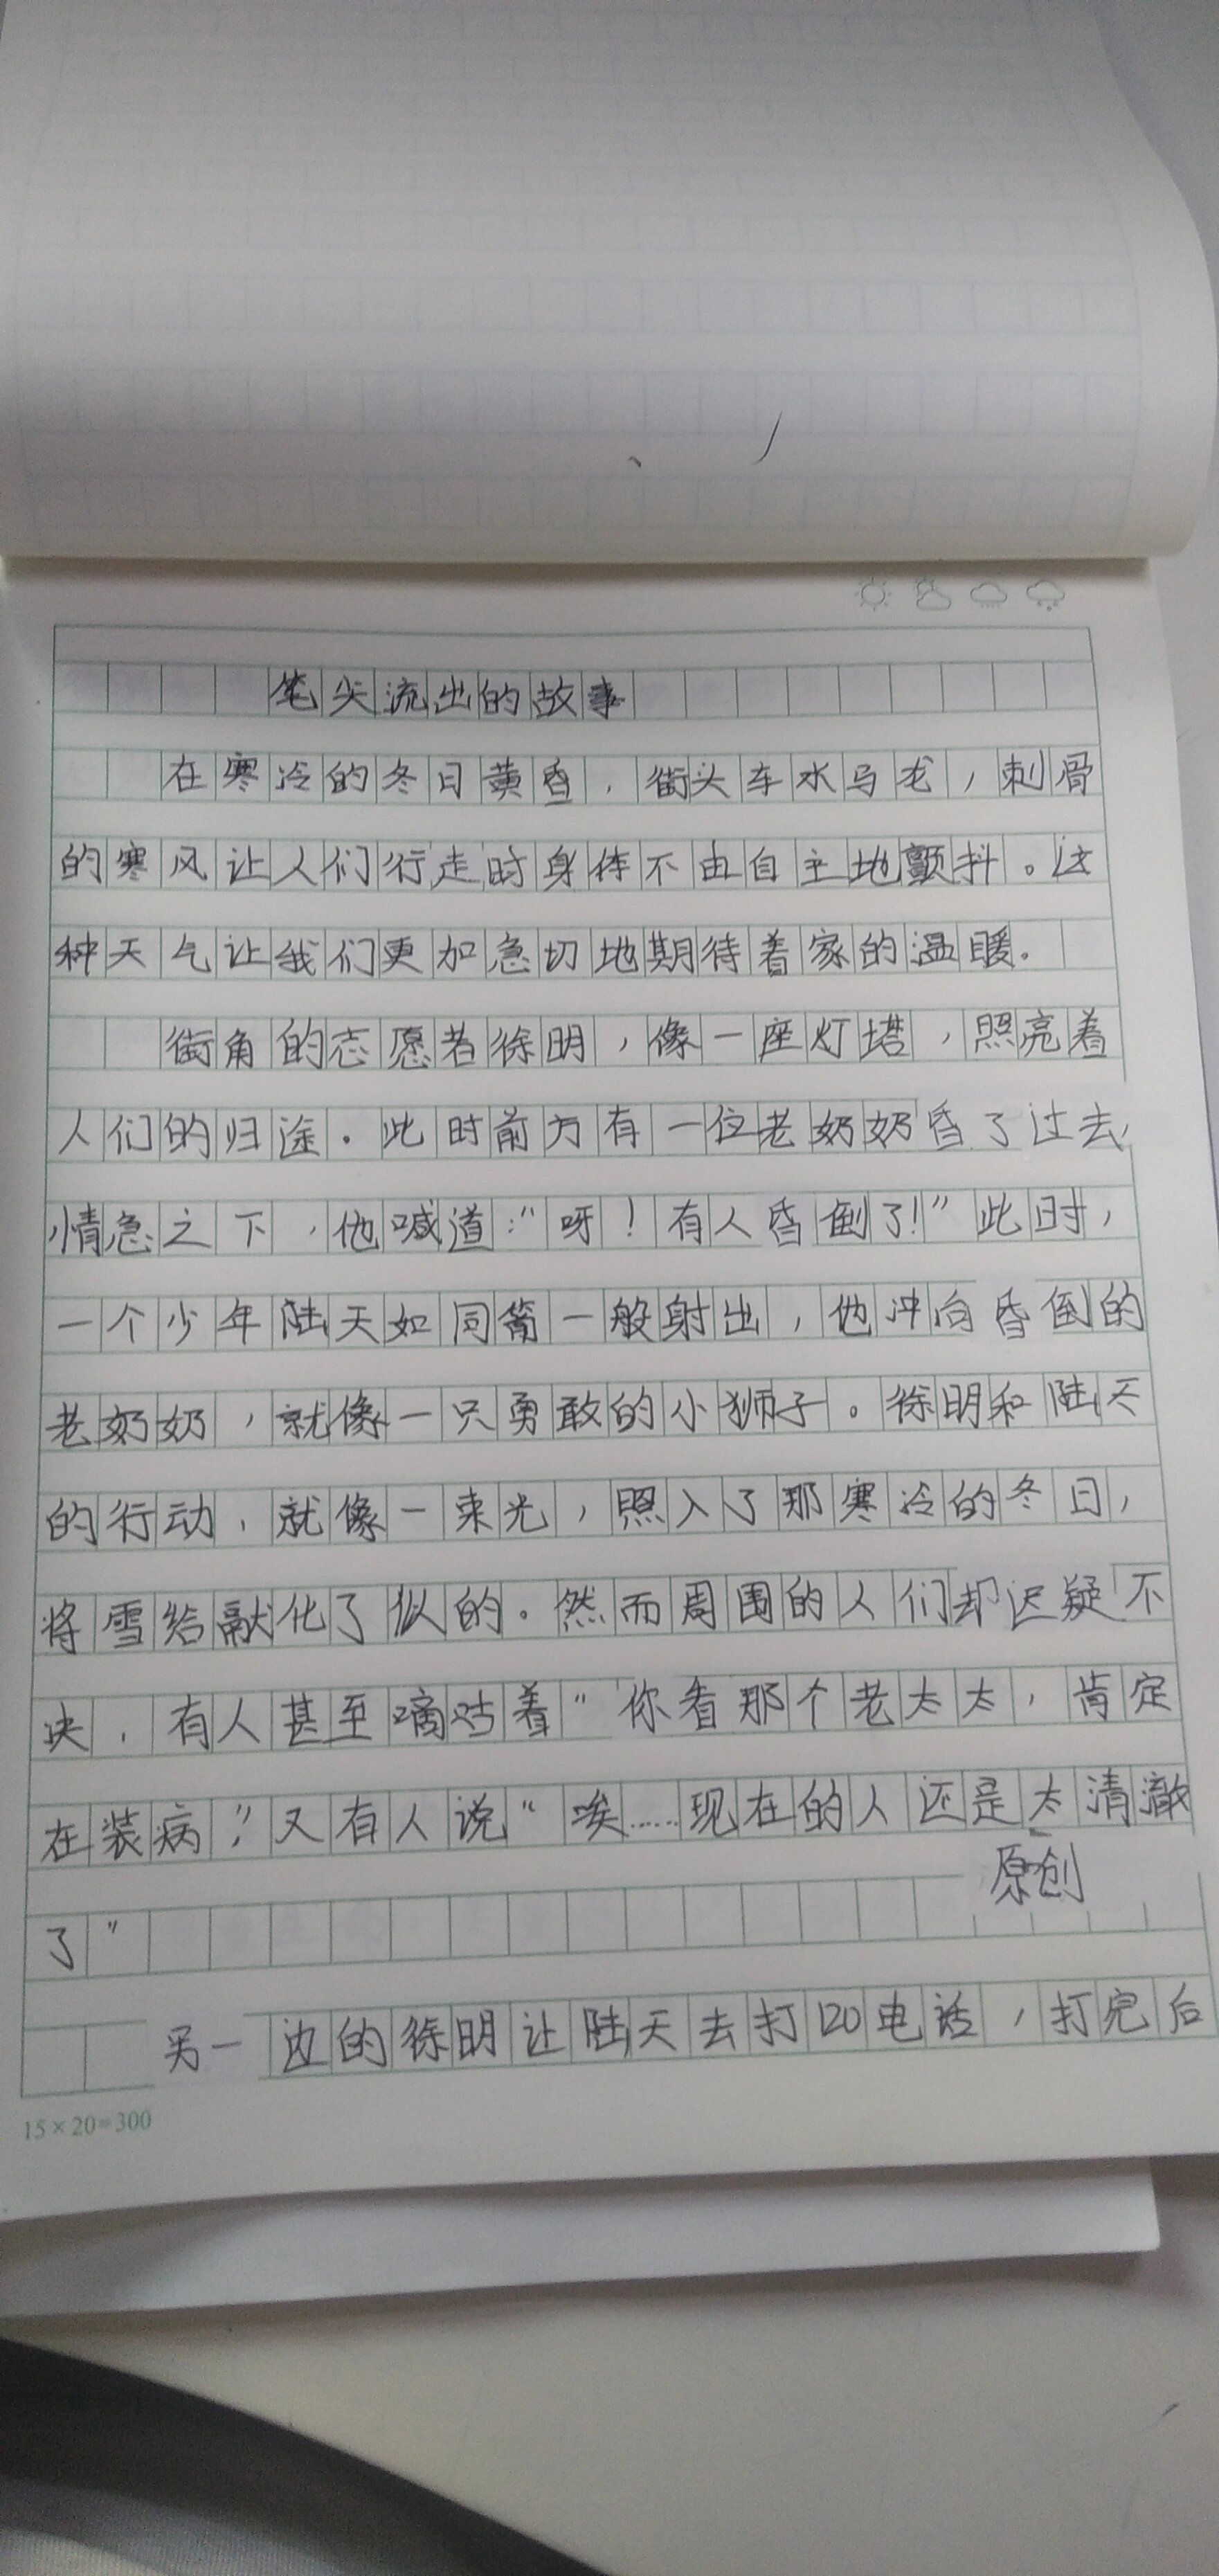 笔尖流出的故事
在寒冷的冬日黄昏，街头车水马龙，刺骨
的寒风让人们行走时身体不由自主地颤抖。这
种天气让我们更加急切地期待着家的温暖。
街角的志愿者徐明，像一座灯塔，照亮着
人们的归途。此时前方有一位老奶奶昏了过去，
情急之下，他喊道：“呀！有人昏倒了！”此时，
一个少年陆天如同箭一般射出，他冲向昏倒的
老奶奶，就像一只勇敢的小狮子。徐明和陆天
的行动，就像一束光，照入了那寒冷的冬日，
将雪给融化了似的。然而周围的人们却迟疑不
决，有人甚至嘀咕着“你看那个老太太，肯定
在装病，”又有人说“唉……现在的人还是太清澈
原创
了”
另一边的徐明让陆天去打120电话，打完后
15×20=300